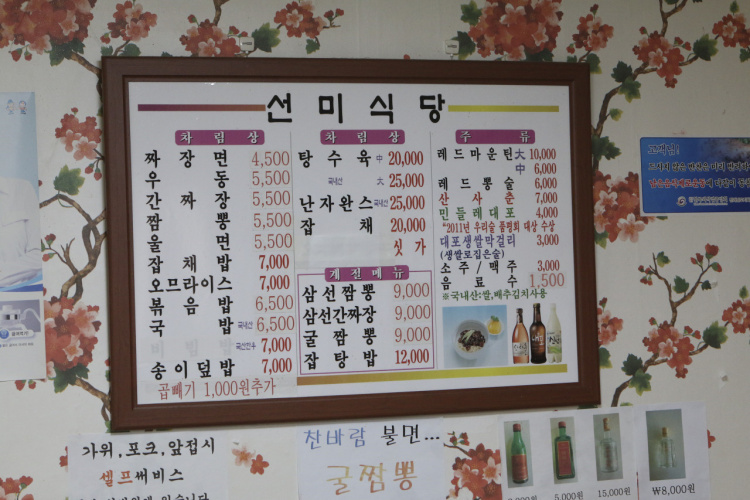 선미식당
차림상
짜장면 4,500
우동 5,500
간짜장 5,500
짬뽕 5,500
울면 5,500
잡채밥 7,000
오므라이스 7,000
볶음밥 6,500
국밥 국내산 6,500
국내산한우 7,000
송이덮밥 7,000
곱빼기 1,000원추가
차림상
탕수육 中 20,000
국내산 大 25,000
난자완스 국내산 25,000
잡채 20,000
싯가
계절메뉴
삼선짬뽕 9,000
삼선간짜장 9,000
굴짬뽕 9,000
잡탕밥 12,000
주류
레드마운틴 大 10,000
中 6,000
레드뽕술 6,000
산사춘 7,000
민들레대포 4,000
"2011년 우리술 품평회 대상 수상
대포생쌀막걸리 3,000
(생쌀로집은술)
소주/맥주 3,000
음료수 1,500
※국내산:쌀,배추김치사용
고객님!
가위,포크,앞접시
셀프써비스
찬바람 불면...
굴짬뽕
5,000원
15,000원
₩8,000원